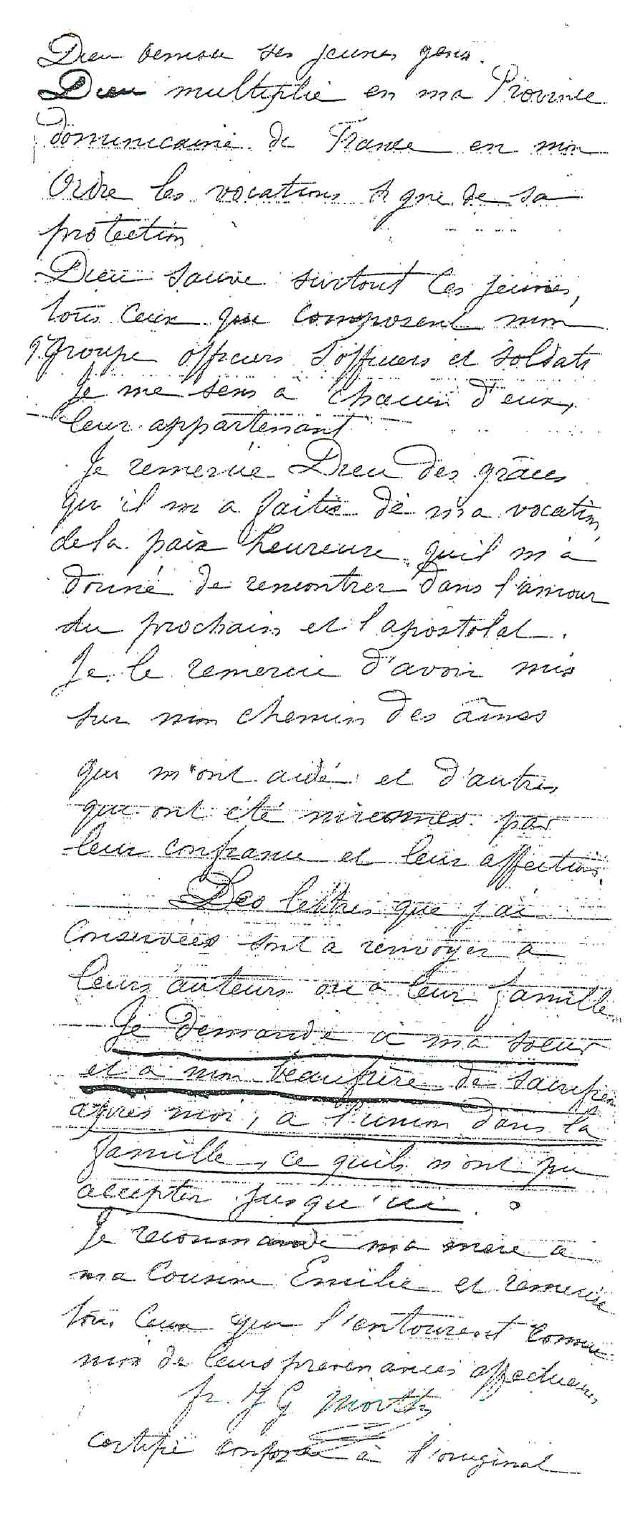 Dieu ses jeunes gens.
Dieu multiplie en ma Province
dominicaine de France en mon
Ordre les vocations signe de sa
protection
Dieu sauve surtout les jeunes,
tous ceux qui composent mon
groupe officiers s/officiers et soldats
Je me sens à chacun d'eux,
leur appartenant
Je remercie Dieu des grâces
qu'il m'a faites de ma vocation,
de la paix heureuse qu'il m'a
donné de rencontrer dans l'amour
du prochain et l'apostolat.
Je le remercie d'avoir mis
sur mon chemin des âmes
qui m'ont aidé et d'autres
qui ont été par
leur confiance et leur affection.
Des lettres que j'ai
conservées sont à renvoyer à
leurs auteurs ou à leur famille
Je demande à ma sœur
et à mon beau frère de sacrifier
après moi, à l'union dans la
famille, ce qu'ils n'ont pu
accepter jusqu'ici.
Je recommande ma mère à
ma Cousine Emilie et remercie
tous ceux qui l'entourent comme
moi de leurs prévenances affectueuses
fr. G
certifié conforme à l'original